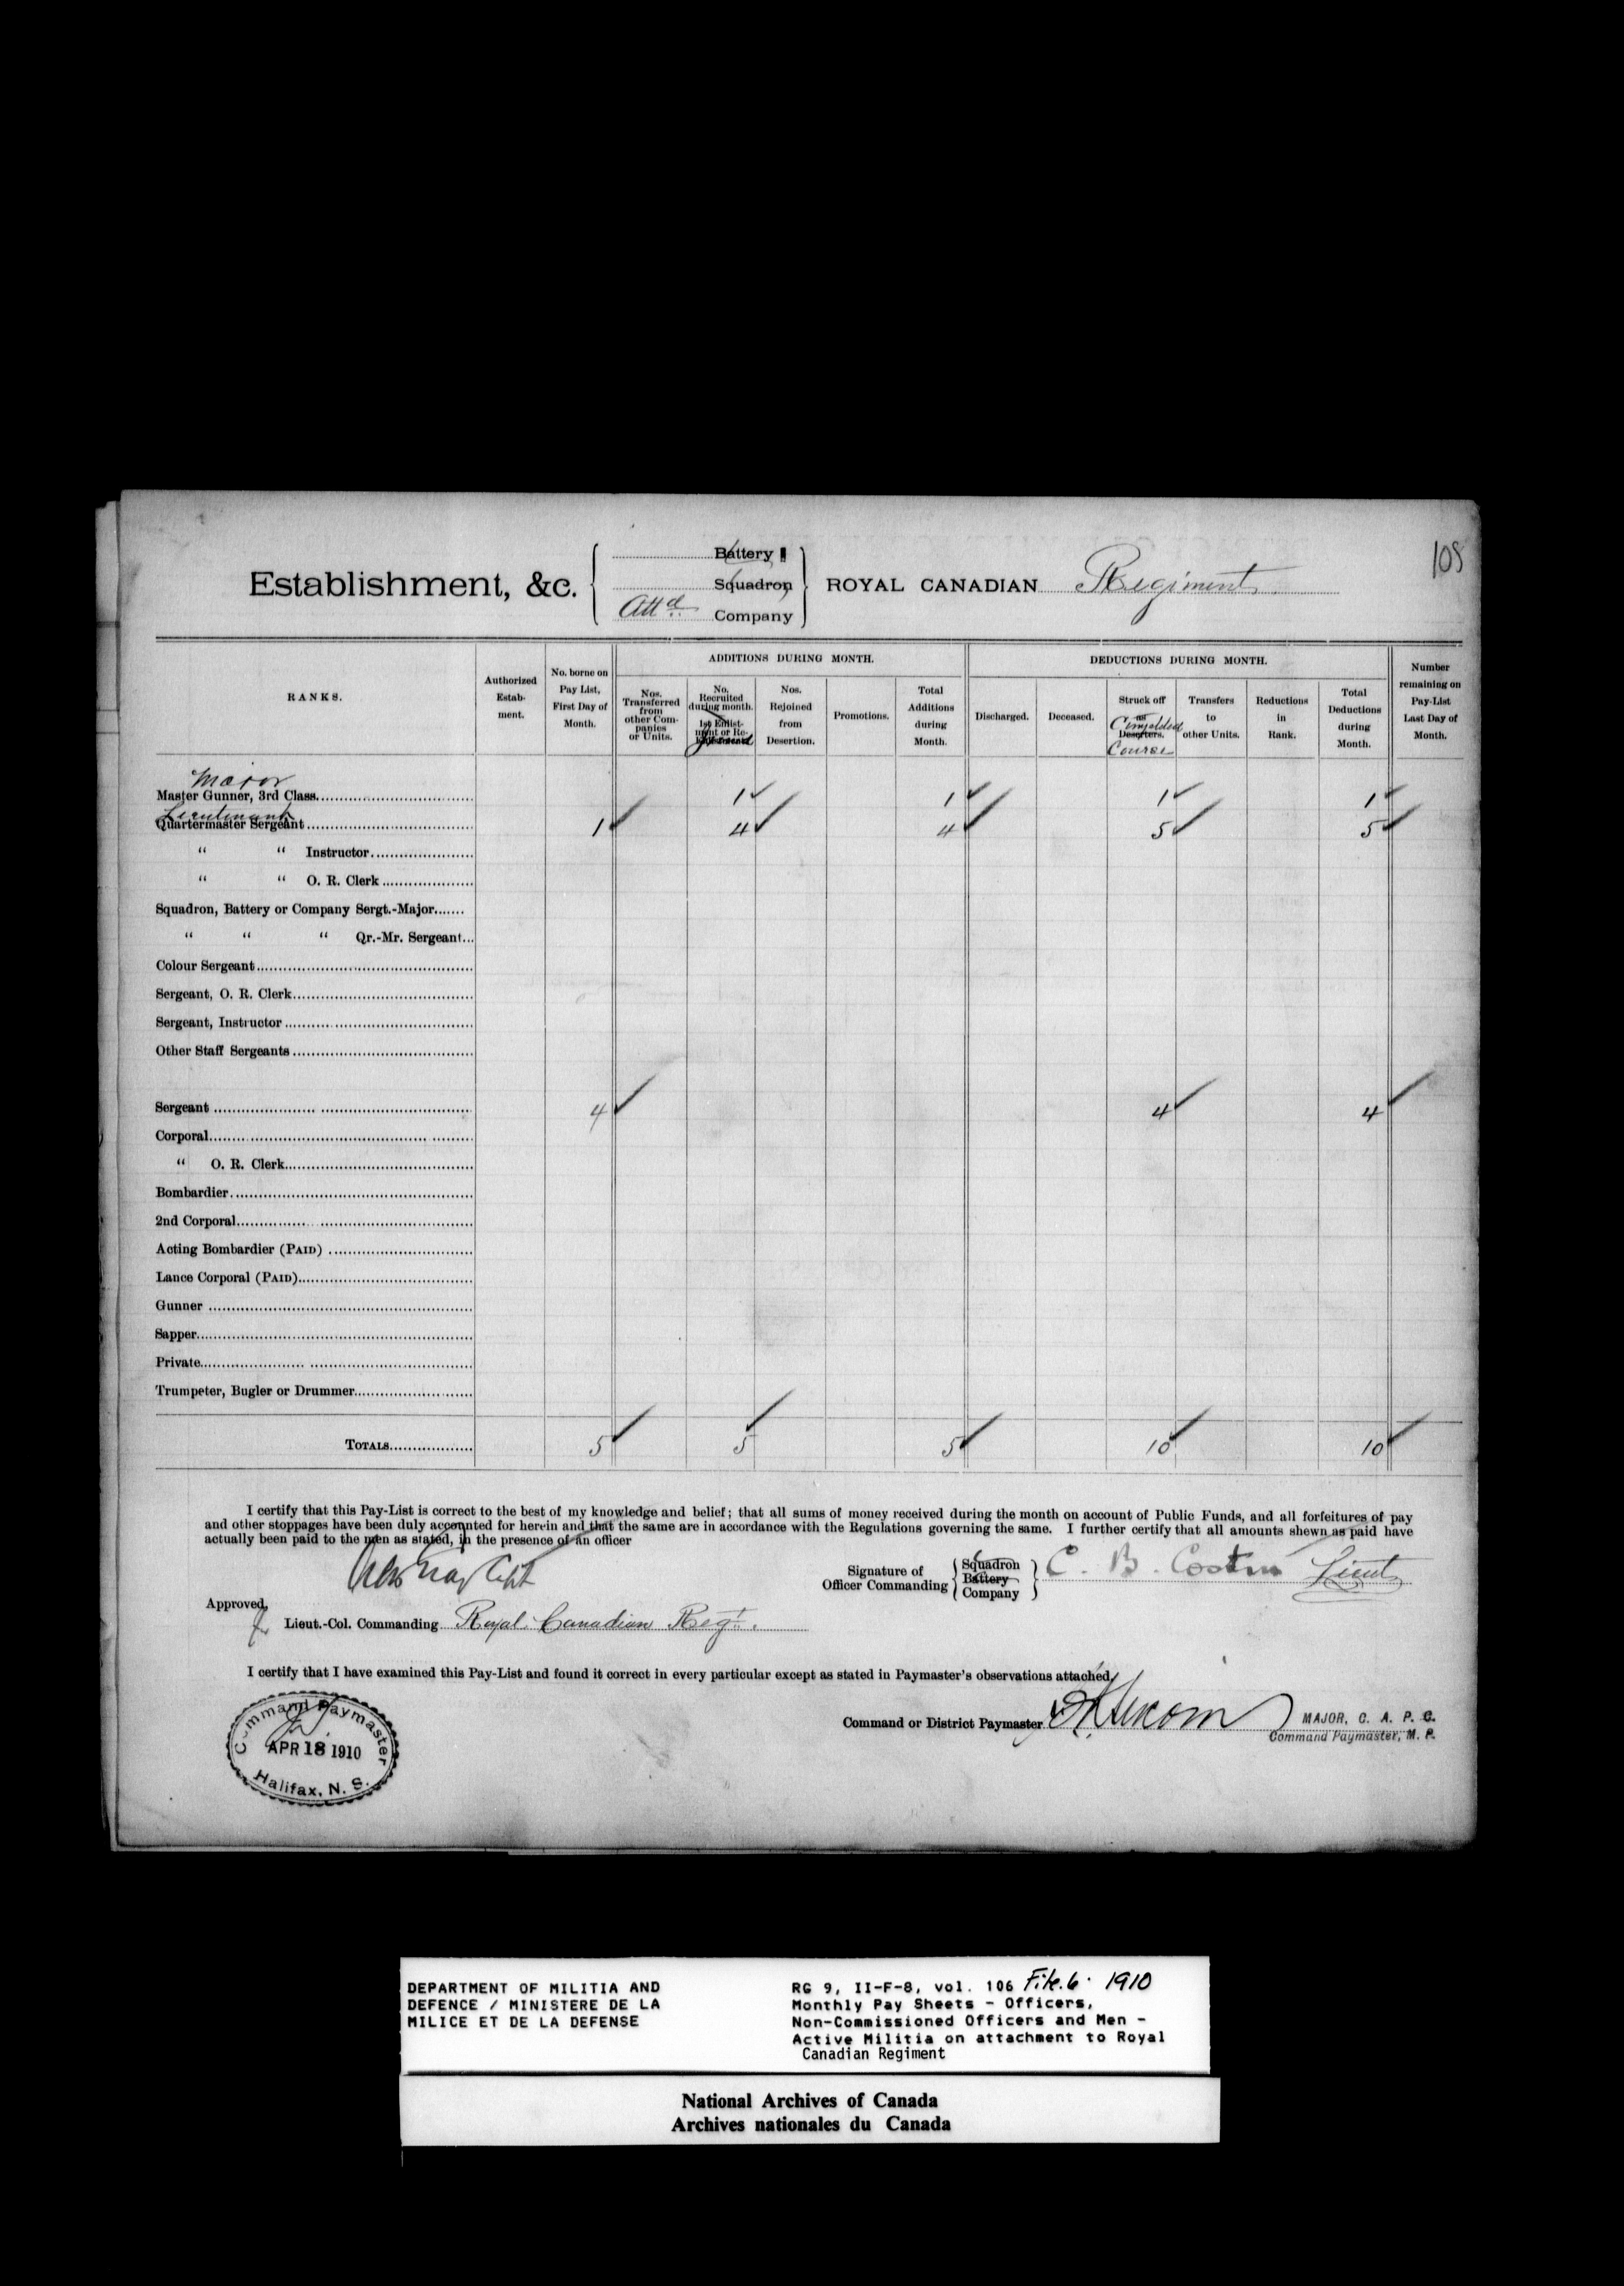 108
Establishment, &c.
Battery
Squadron
Attd Company
ROYAL CANADIAN Regiment
RANKS.
Authorized Estab- ment.
No. borne on Pay List, First Day of Month.
ADDITIONS DURING MONTH.
Nos. Transferred from other Com- panies or Units.
No. Recruited during month. 1st Enlist- ment or Re-
Nos. Rejoined from Desertion.
Promotions.
Total Additions during Month.
DEDUCTIONS DURING MONTH.
Discharged.
Deceased.
Struck off as Deserters. Completed Course
Transfers to other Units.
Reductions in Rank.
Total Deductions during Month.
Number remaining on Pay-List Last Day of Month.
Major
Master Gunner, 3rd Class 1 1 1 1
Lieutenant
Quartermaster Sergeant 1 4 4 5 5
" " Instructor
" " O. R. Clerk
Squadron, Battery or Company Sergt.-Major
" " " Qr.-Mr. Sergeant
Colour Sergeant
Sergeant, O. R. Clerk
Sergeant, Instructor
Other Staff Sergeants
Sergeant 4 4 4
Corporal
" O. R. Clerk
Bombardier
2nd Corporal
Acting Bombardier (PAID)
Lance Corporal (PAID)
Gunner
Sapper
Private
Trumpeter, Bugler or Drummer
TOTALS 5 5 5 10 10
I certify that this Pay-List is correct to the best of my knowledge and belief; that all sums of money received during the month on account of Public Funds, and all forfeitures of pay
and other stoppages have been duly accounted for herein and that the same are in accordance with the Regulations governing the same. I further certify that all amounts shewn as paid have
actually been paid to the men as stated, in the presence of an officer
Signature of Officer Commanding
Squadron
Battery
Company
C. B. Lieut
Approved,
for Lieut.-Col. Commanding Royal Canadian Regt.
I certify that I have examined this Pay-List and found it correct in every particular except as stated in Paymaster's observations attached.
Command or District Paymaster
MAJOR, C. A. P. C.
Command Paymaster, M. P.
Command Paymaster
APR 18 1910
Halifax, N. S.
DEPARTMENT OF MILITIA AND
DEFENCE / MINISTERE DE LA
MILICE ET DE LA DEFENSE
RG 9, II-F-8, vol. 106 File.6. 1910
Monthly Pay Sheets - Officers,
Non-Commissioned Officers and Men -
Active Militia on attachment to Royal
Canadian Regiment
National Archives of Canada
Archives nationales du Canada